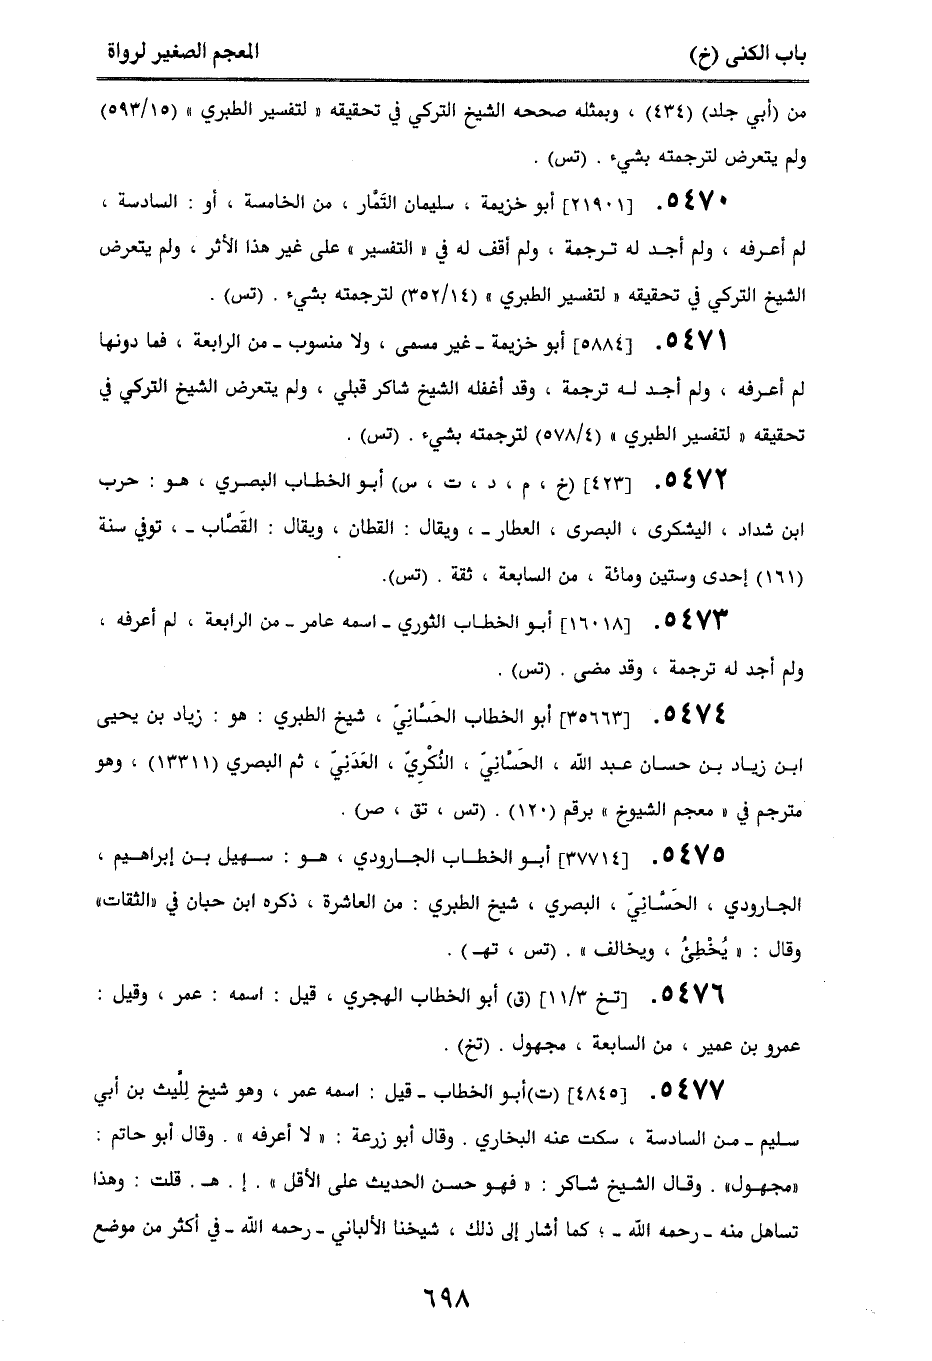 باب الكنى (خ) المعجم الصغير لرواة
من (أبي جلد) (٤٣٤) ، وبمثله صححه الشيخ التركي في تحقيقه « لتفسير الطبري » (٥٩٣/١٥)
ولم يتعرض لترجمته بشيء . (تس) .
٥٤٧٠. [٢١٩٠١] أبو خزيمة ، سليمان التَمَّار ، من الخامسة ، أو : السادسة ،
لم أعرفه ، ولم أجد له ترجمة ، ولم أقف له في « التفسير » على غير هذا الأثر ، ولم يتعرض
الشيخ التركي في تحقيقه « لتفسير الطبري » (٣٥٢/١٤) لترجمته بشيء . (تس) .
٥٤٧١. [٥٨٨٤] أبو خزيمة ـ غير مسمى ، ولا منسوب ـ من الرابعة ، فما دونها
لم أعرفه ، ولم أجد له ترجمة ، وقد أغفله الشيخ شاكر قبلي ، ولم يتعرض الشيخ التركي في
تحقيقه « لتفسير الطبري » (٥٧٨/٤) لترجمته بشيء . (تس) .
٥٤٧٢. [٤٢٣] (خ ، م ، د ، ت ، س) أبو الخطاب البصري ، هو : حرب
ابن شداد ، اليشكرى ، البصرى ، العطار ـ ، ويقال : القطان ، ويقال : القَصَّاب ـ ، توفي سنة
(١٦١) إحدى وستين ومائة ، من السابعة ، ثقة . (تس).
٥٤٧٣. [١٦٠١٨] أبو الخطاب الثوري ـ اسمه عامر ـ من الرابعة ، لم أعرفه ،
ولم أجد له ترجمة ، وقد مضى . (تس) .
٥٤٧٤. [٣٥٦٦٣] أبو الخطاب الحَسَّانِيّ ، شيخ الطبري : هو : زياد بن يحيى
ابن زياد بن حسان عبد الله ، الحَسَّانِيّ ، النُكْرِيّ ، العَدَنِيّ ، ثم البصري (١٣٣١١) ، وهو
مترجم في « معجم الشيوخ » برقم (١٢٠) . (تس ، تق ، صر) .
٥٤٧٥. [٣٧٧١٤] أبو الخطاب الجارودي ، هو : سهيل بن إبراهيم ،
الجارودي ، الحَسَّانِيّ ، البصري ، شيخ الطبري : من العاشرة ، ذكره ابن حبان في «الثقات»
وقال : « يُخْطِئُ ، ويخالف » . (تس ، تهـ ) .
٥٤٧٦. [تخ ١١/٣] (ق) أبو الخطاب الهجري ، قيل : اسمه : عمر ، وقيل :
عمرو بن عمير ، من السابعة ، مجهول . (تخ) .
٥٤٧٧. [٤٨٤٥] (ت)أبو الخطاب ـ قيل : اسمه عمر ، وهو شيخ لِلَّيث بن أبي
سليم ـ من السادسة ، سكت عنه البخاري . وقال أبو زرعة : « لا أعرفه » . وقال أبو حاتم :
«مجهول» . وقال الشيخ شاكر : « فهو حسن الحديث على الأقل » . إ . هـ . قلت : وهذا
تساهل منه ـ رحمه الله ـ ؛ كما أشار إلى ذلك ، شيخنا الألباني ـ رحمه الله ـ في أكثر من موضع
٦٩٨